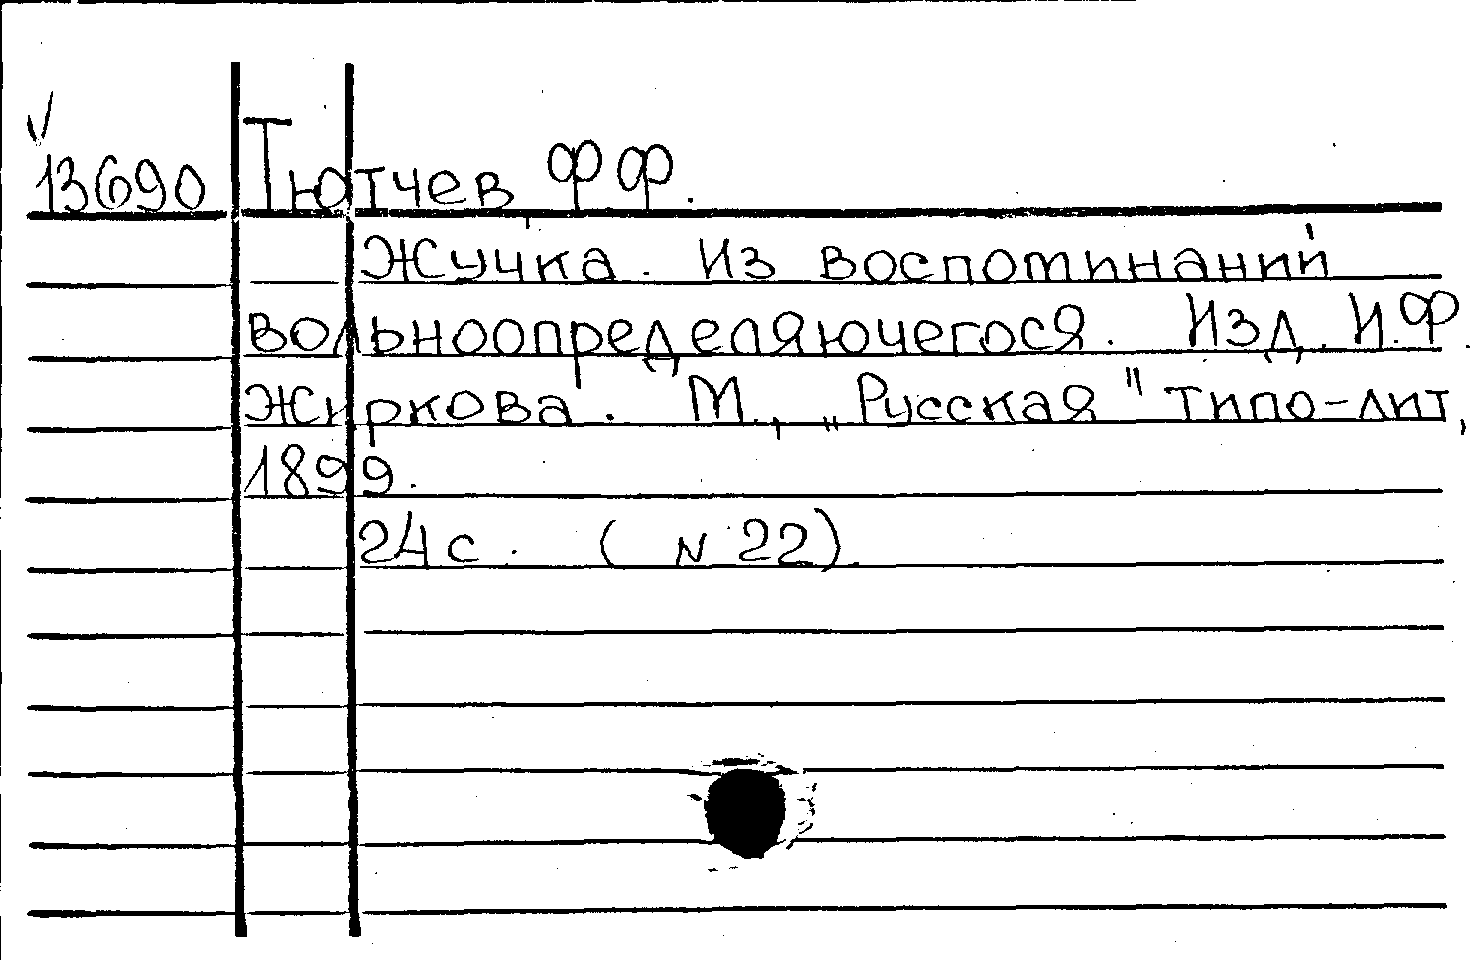 √
13690 Тютчев, Ф Ф.
Жучка. Из воспоминаний
вольноопределяючегося. Изд. И.Ф.
Жиркова. М., „Русская" типо-лит,
1899.
24с. (N 22).